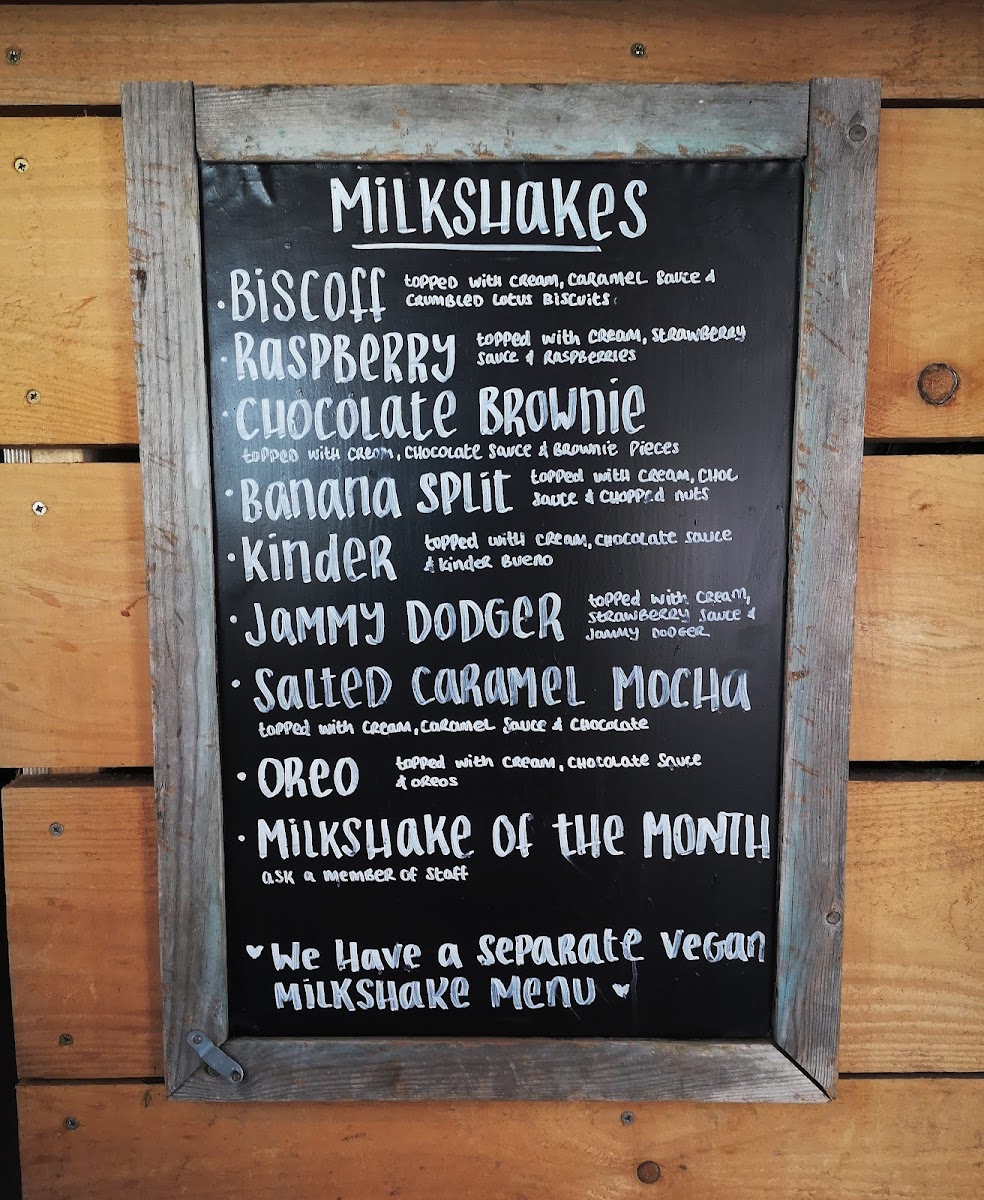 MiLKSHaKeS
• BiSCOff topped with cream, caramel sauce &
crumbled lotus biscuits.
• RaSPBeRRY topped with cream, strawberry
sauce & raspberries
• CHOCOLate BROWnie
topped with cream, chocolate sauce & brownie pieces
• Banana SPLit topped with cream, choc
sauce & chopped nuts
• Kinder topped with cream, chocolate sauce
& kinder bueno
• JAMMY DODGER topped with cream,
strawberry sauce &
jammy dodger
• Salted CaRaMeL MOCHa
topped with cream, caramel sauce & chocolate
• OReO topped with cream, chocolate sauce
& oreos
• MiLKSHaKe OF the MONTH
ask a member of staff
♥ We Have a SePaRate VeGan
MiLKSHaKe MenU ♥